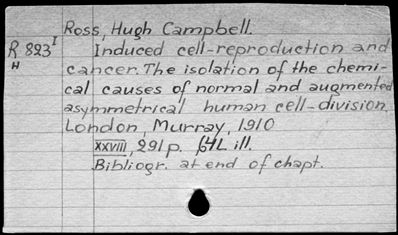 Ross, Hugh Campbell.
R 823 I Induced cell-reproduction and
H cancer. The isolation of the chemi-
cal causes of normal and augmented
asymmetrical human cell-division.
London, Murray, 1910
XXVIII, 291 p. ill.
Bibliogr. at end of chapt.